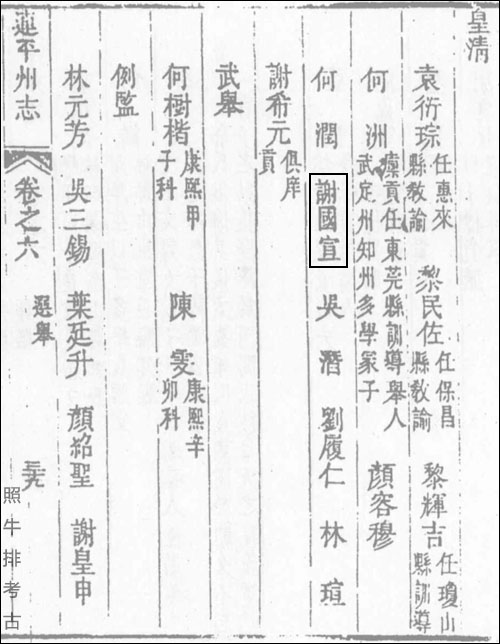 皇清
袁衍琮 任惠來縣教諭 黎民佐 任保昌縣教諭 黎輝吉 任瓊山縣訓導
何洲 廩貢任東莞縣訓導舉人武定州知州多學冢子 顏容穆
何潤 謝國宣 吳潛 劉履仁 林瑄
謝希元 俱庠貢
武舉
何樹楷 康熙甲子科 陳雯 康熙辛卯科
例監
林元芳 吳三錫 葉廷升 顏紹聖 謝皇申
連平州志 卷之六 選舉
照牛排考古